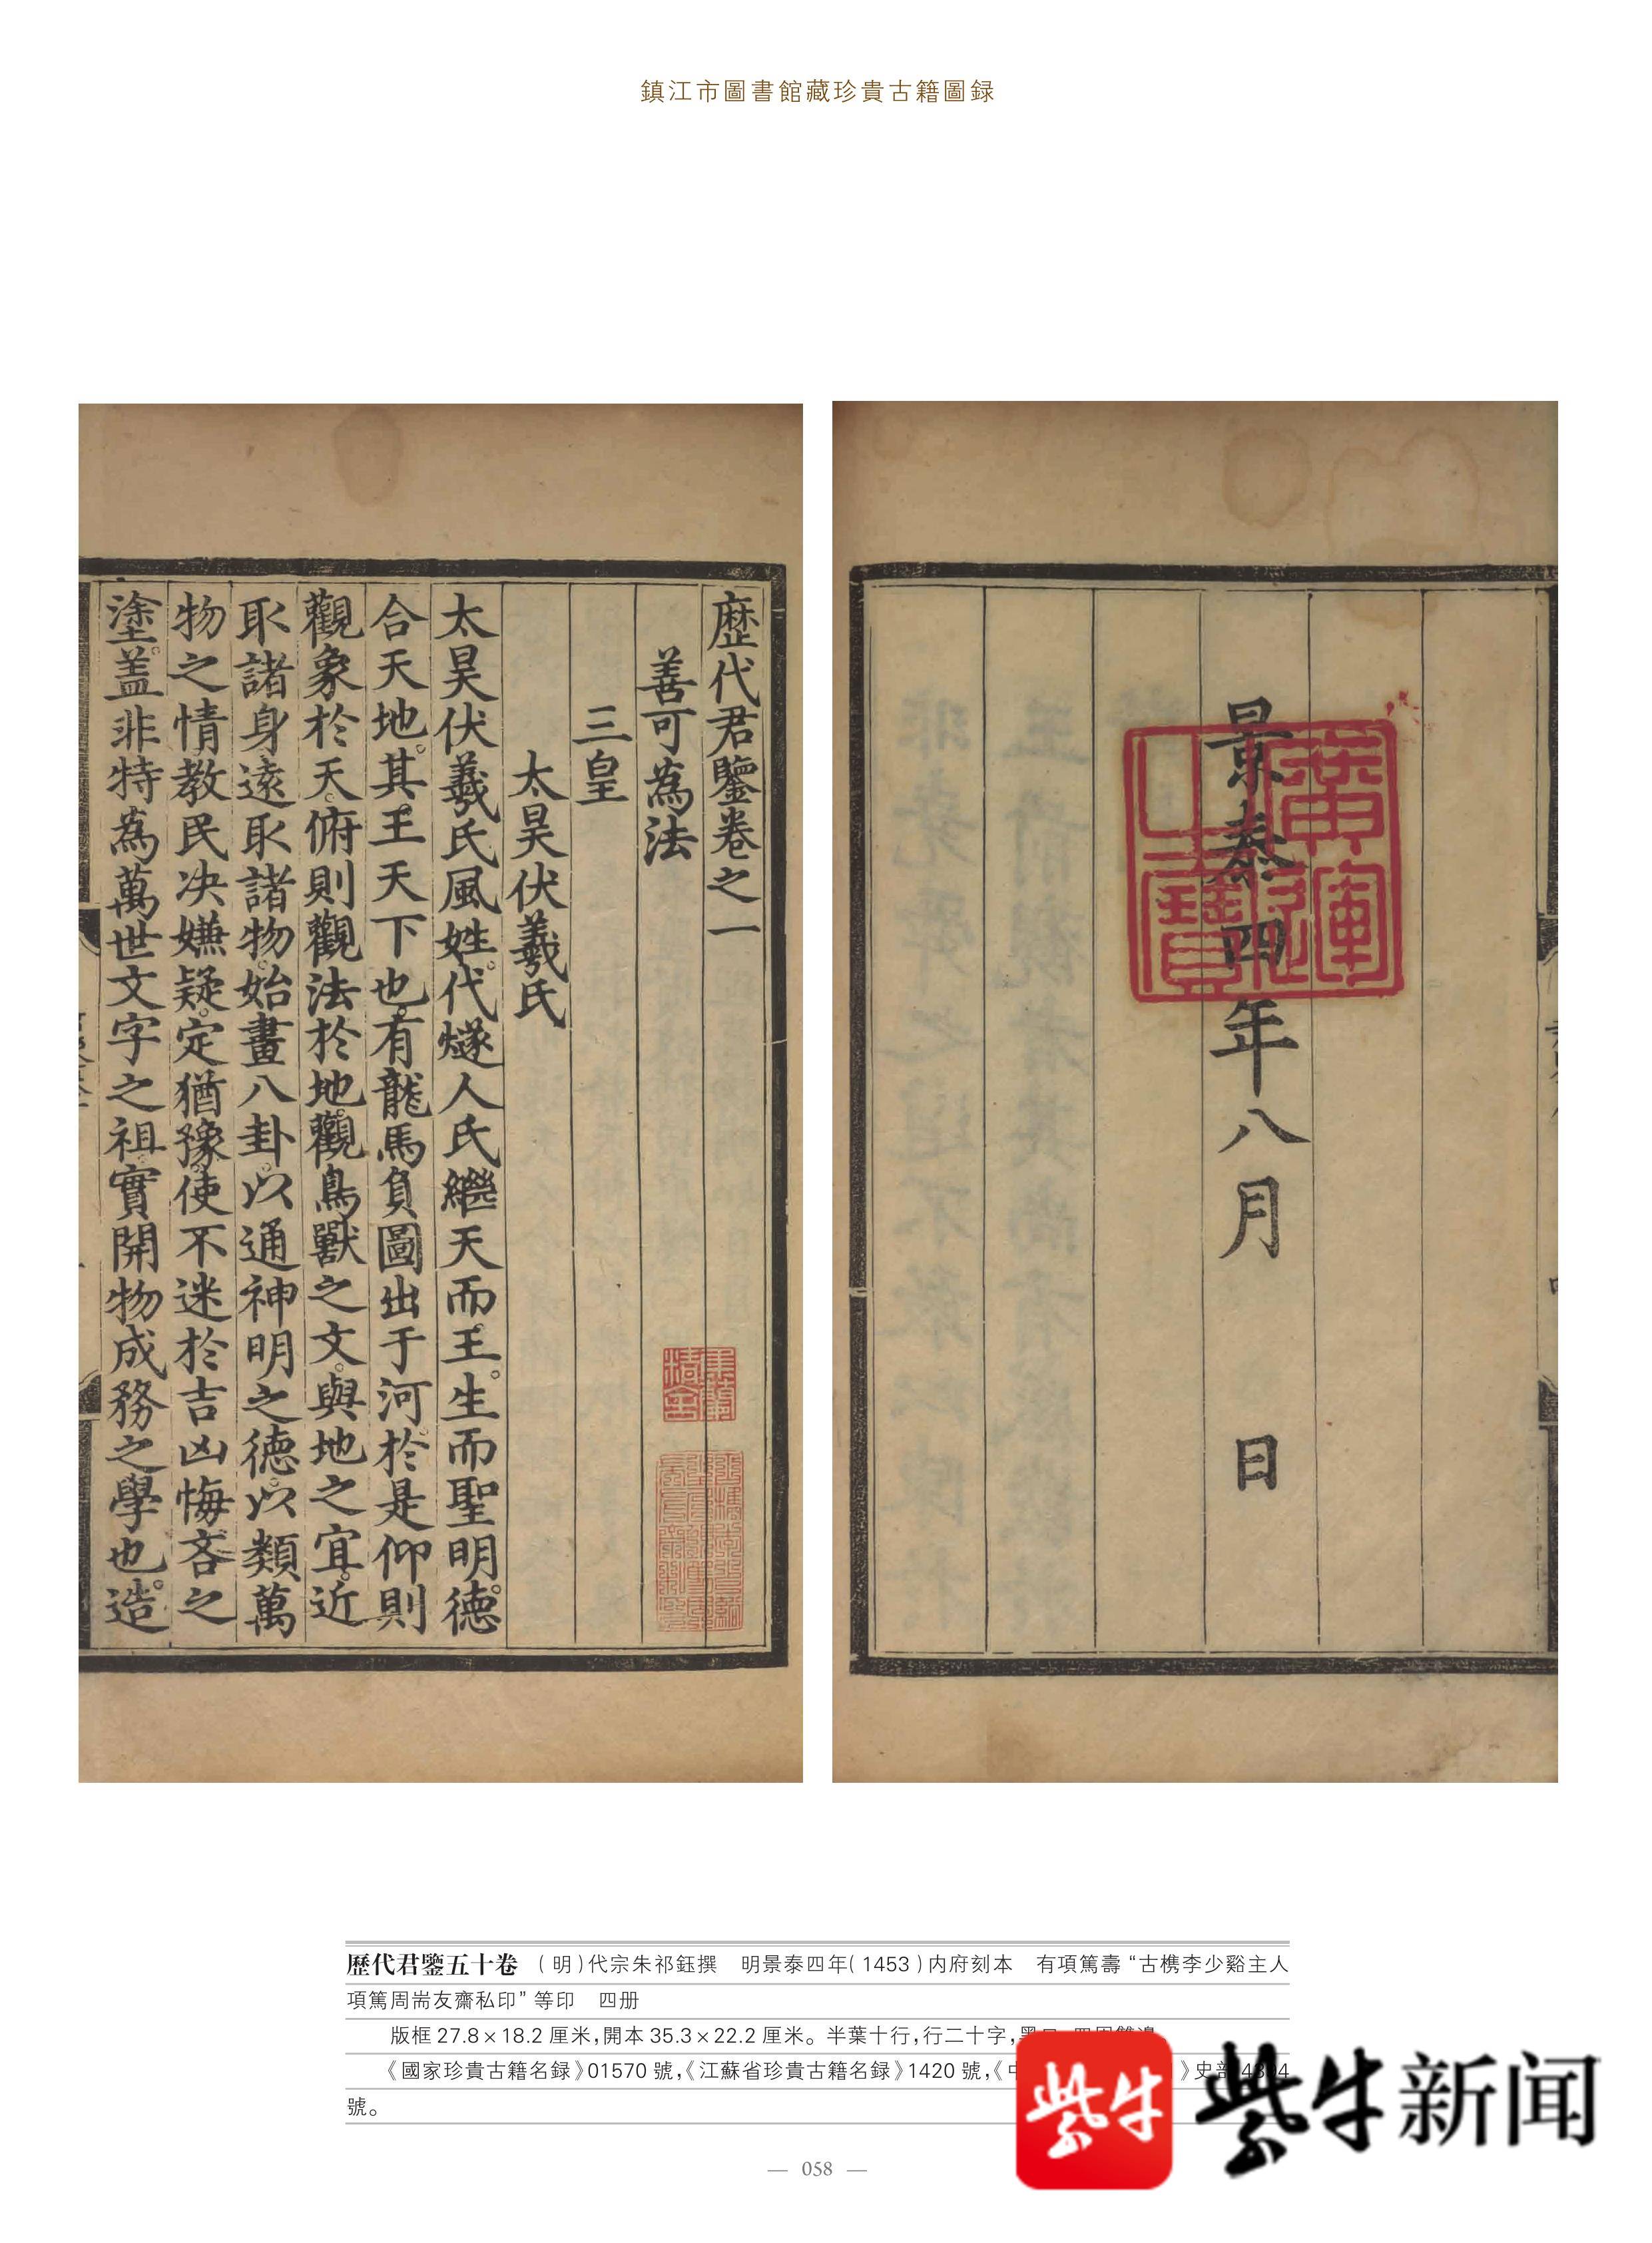 鎮江市圖書館藏珍貴古籍圖録
景泰四年八月　日
廣運之寶
歷代君鑒卷之一
善可為法
三皇
太昊伏羲氏
太昊伏羲氏風姓代燧人氏繼天而王生而聖明德
合天地其王天下也有龍馬負圖出于河於是仰則
觀象於天俯則觀法於地觀鳥獸之文與地之宜近
取諸身遠取諸物始畫八卦以通神明之德以類萬
物之情教民決嫌疑定猶豫使不迷於吉凶悔吝之
塗蓋非特為萬世文字之祖實開物成務之學也造
歷代君鑒五十卷 （明）代宗朱祁鈺撰 明景泰四年（1453）内府刻本 有項篤壽“古檇李少谿主人
項篤周耑友齋私印”等印 四册
版框 27.8×18.2 厘米，開本 35.3×22.2 厘米。半葉十行，行二十字，
《國家珍貴古籍名録》01570 號，《江蘇省珍貴古籍名録》1420 號，《 》史部
號。
— 058 —
紫牛
紫牛新闻